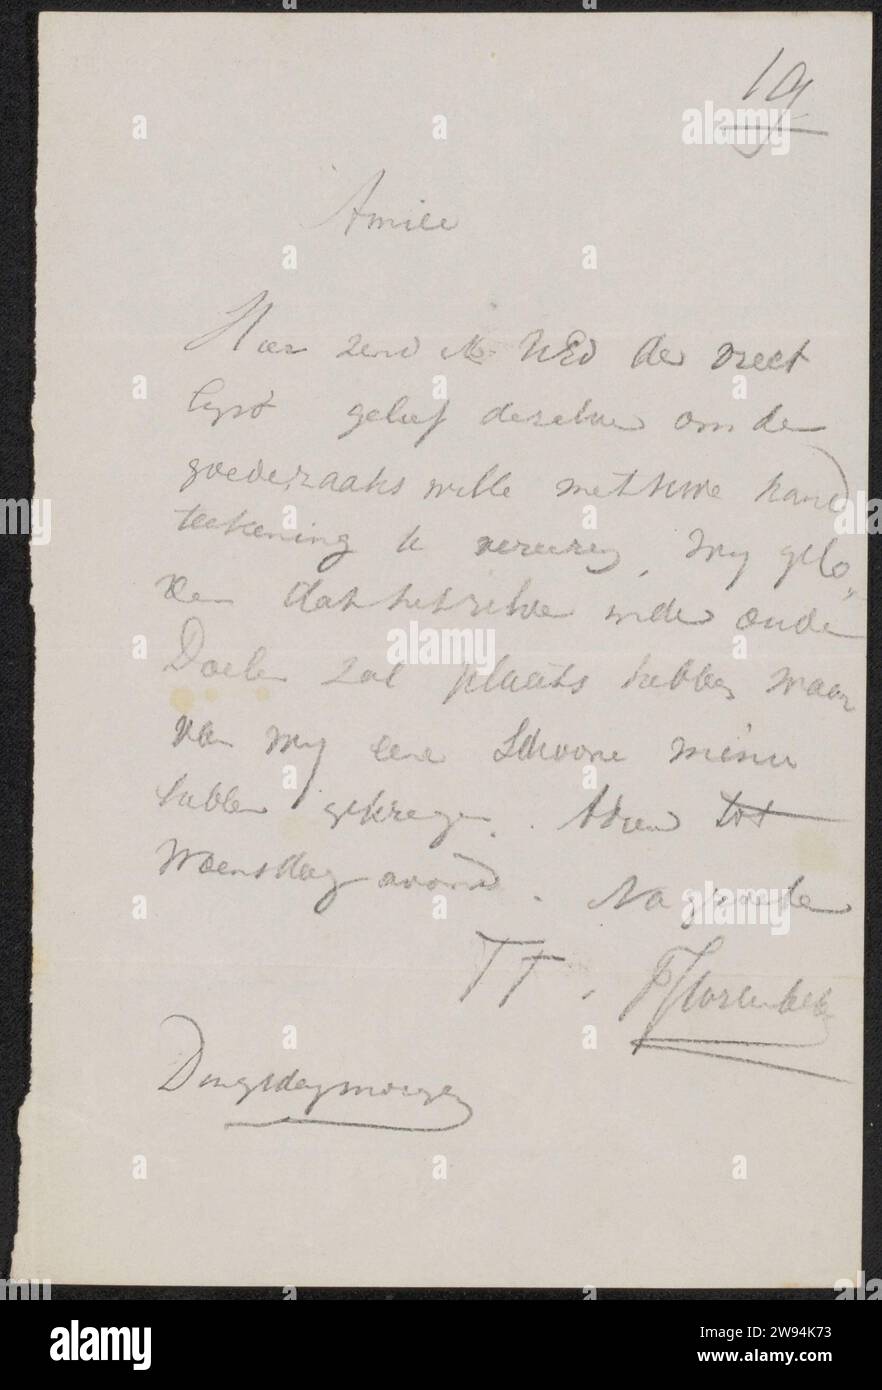 19
Amice
Hier zend ik UEd de vreet
lyst gelief dezelve om de
goede zaaks wille met Uwe hand
teekening te vereeren, my gelo"
ven dat hetzelve in de oude
Doelen zal plaats hebben waar
van wy eene schoone menu
hebben gekregen. Adieu tot
Woensdag avond. Na groete
TT.
Dingsdagmorgen
alamy
alamy
Image ID: 2W94K73
www.alamy.com